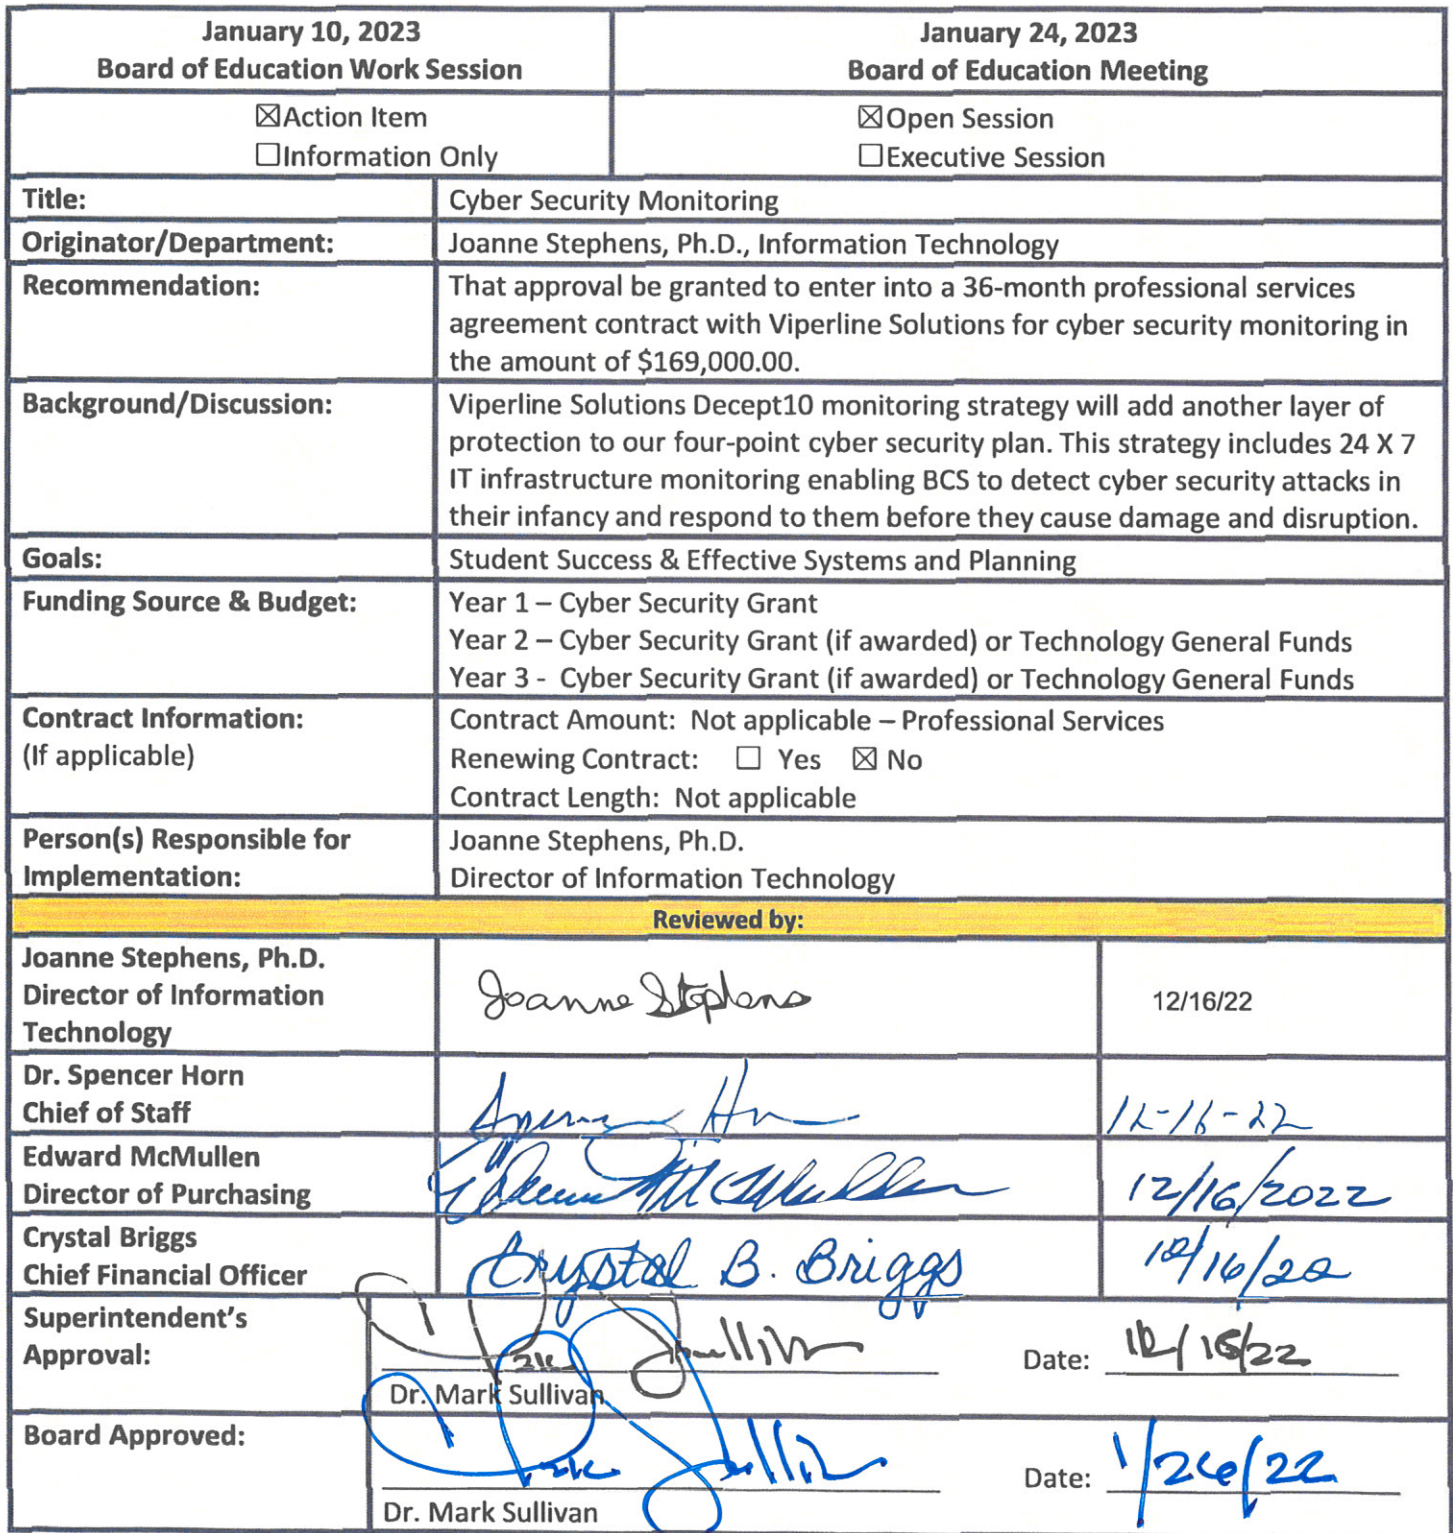 January 10, 2023
Board of Education Work Session
January 24, 2023
Board of Education Meeting
☒Action Item
☐Information Only
☒Open Session
☐Executive Session
Title:
Cyber Security Monitoring
Originator/Department:
Joanne Stephens, Ph.D., Information Technology
Recommendation:
That approval be granted to enter into a 36-month professional services
agreement contract with Viperline Solutions for cyber security monitoring in
the amount of $169,000.00.
Background/Discussion:
Viperline Solutions Decept10 monitoring strategy will add another layer of
protection to our four-point cyber security plan. This strategy includes 24 X 7
IT infrastructure monitoring enabling BCS to detect cyber security attacks in
their infancy and respond to them before they cause damage and disruption.
Goals:
Student Success & Effective Systems and Planning
Funding Source & Budget:
Year 1 – Cyber Security Grant
Year 2 – Cyber Security Grant (if awarded) or Technology General Funds
Year 3 - Cyber Security Grant (if awarded) or Technology General Funds
Contract Information:
(If applicable)
Contract Amount: Not applicable – Professional Services
Renewing Contract: ☐ Yes ☒ No
Contract Length: Not applicable
Person(s) Responsible for
Implementation:
Joanne Stephens, Ph.D.
Director of Information Technology
Reviewed by:
Joanne Stephens, Ph.D.
Director of Information
Technology
Joanne Stephens
12/16/22
Dr. Spencer Horn
Chief of Staff
12-16-22
Edward McMullen
Director of Purchasing
McMullen
12/16/2022
Crystal Briggs
Chief Financial Officer
Crystal B. Briggs
12/16/22
Superintendent's
Approval:
Sullivan
Dr. Mark Sullivan
Date:
Board Approved:
Sullivan
Dr. Mark Sullivan
Date: 1/26/22